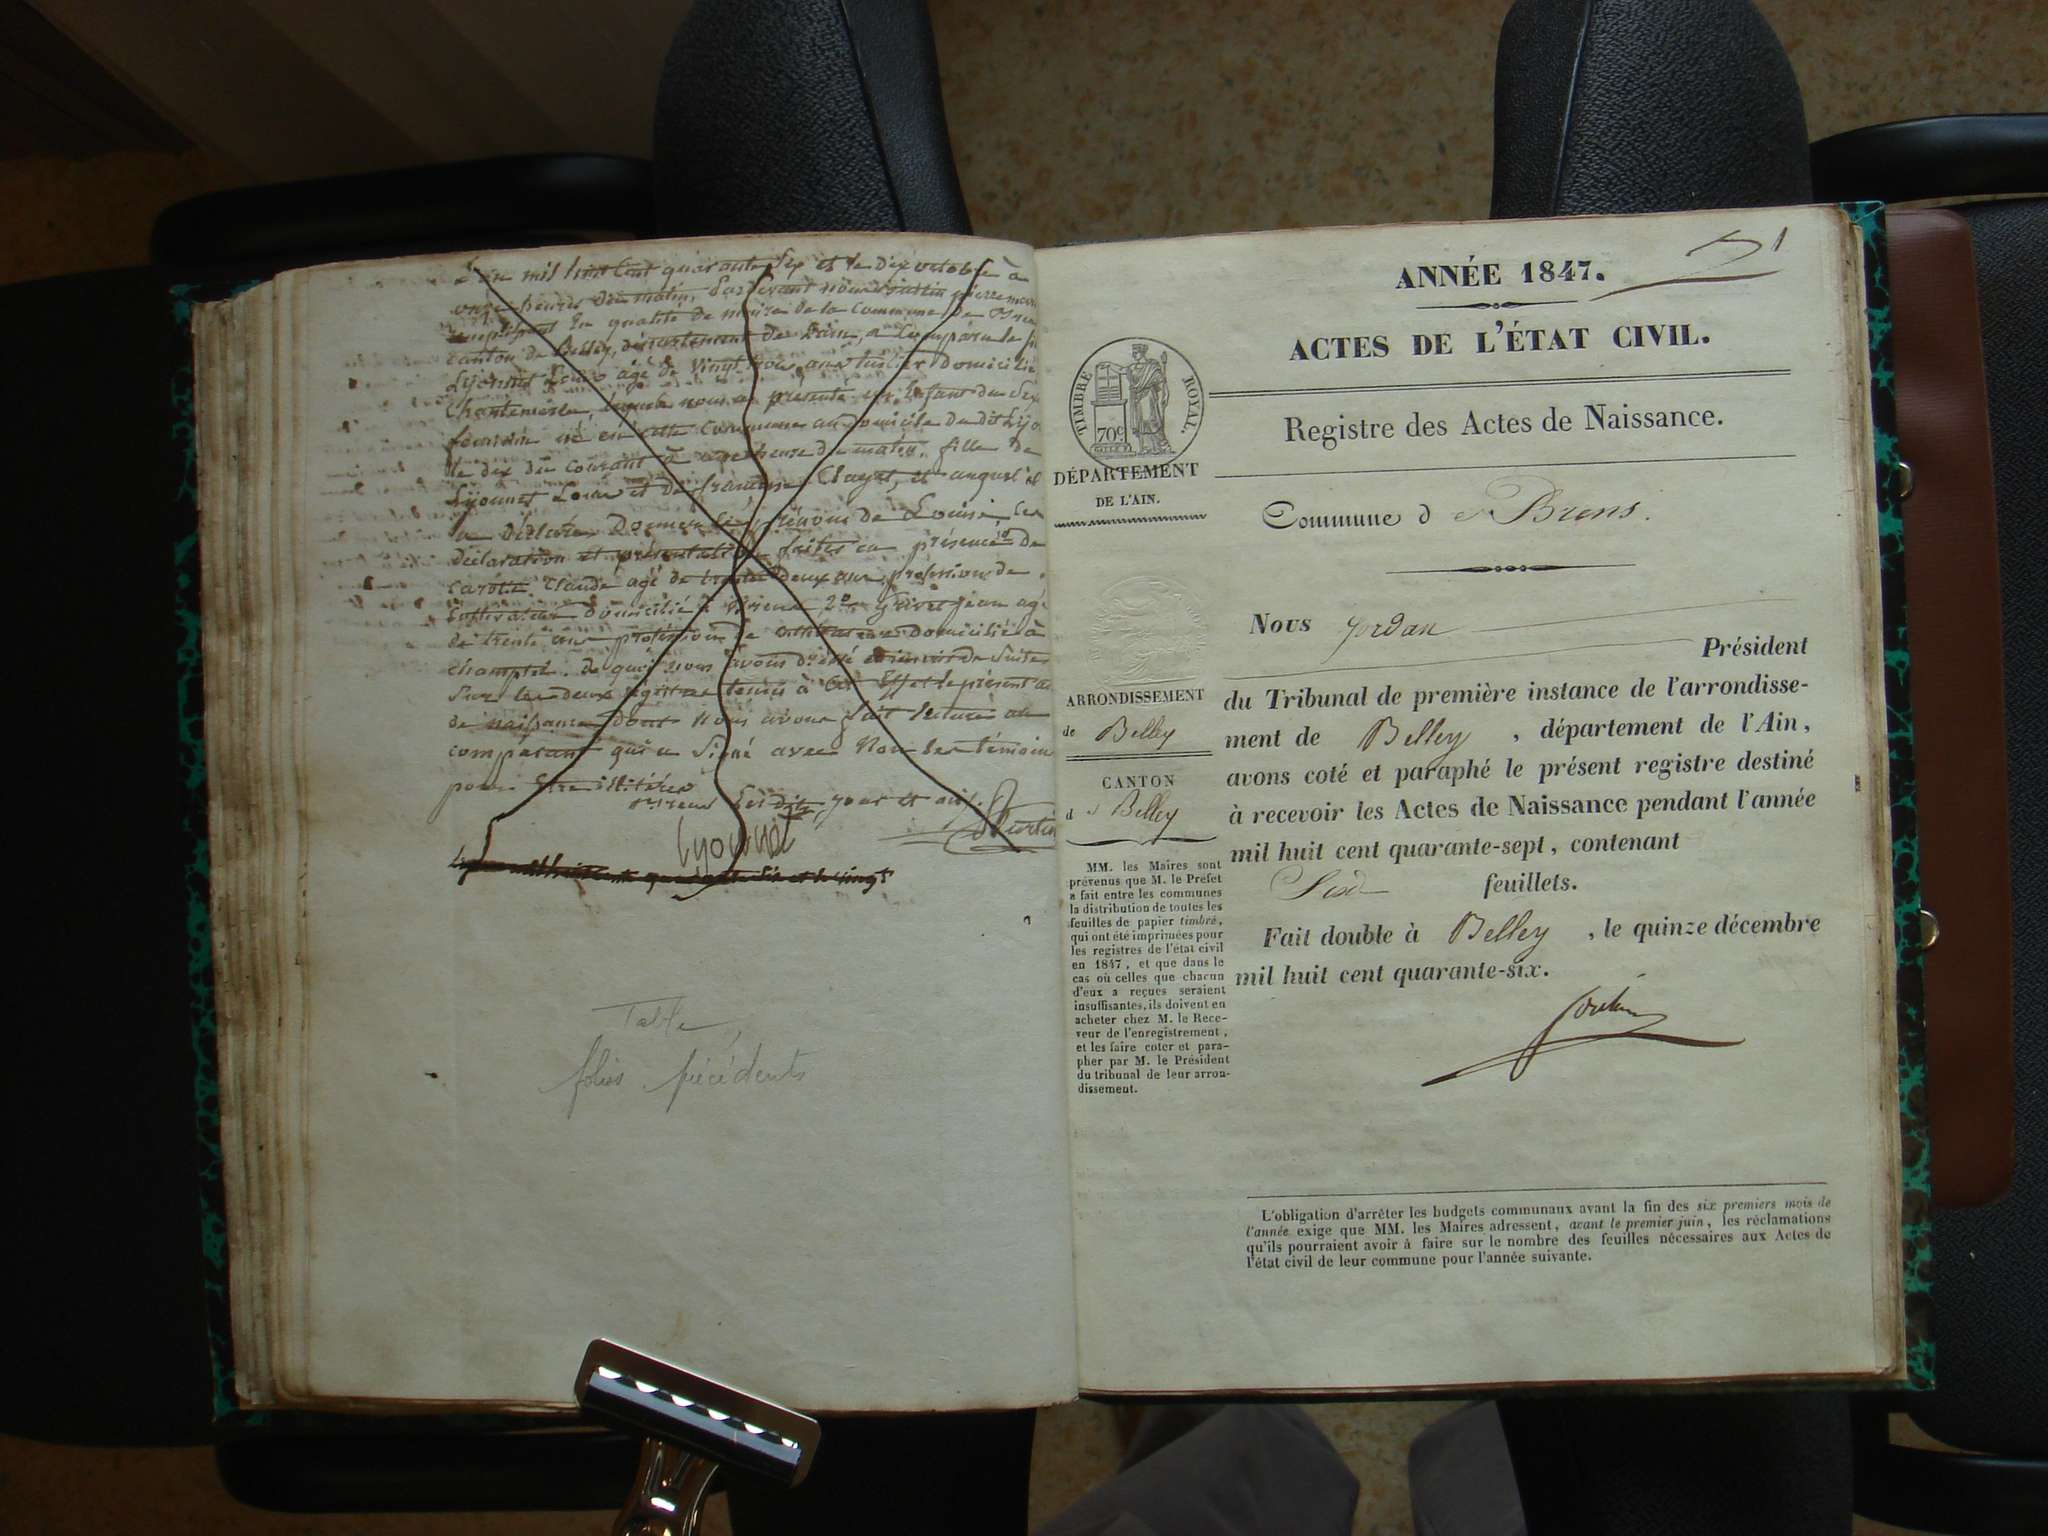 L'an mil huit cent quarante six et le dix octobre à
onze heures du matin, Pardevant nous Martin pierre
remplissant en qualité de maire de la Commune de
canton de Belley, département de l'ain, a comparu le
Lyonnet Louis âgé de vingt trois ans tuilier Domicilié
Chantemerle, lequel nous a présenté un Enfant du Sexe
féminin né en cette Commune au Domicile du dit
le dix du courant à heures du matin, fille de
Lyonnet Louis et de françoise Clayet, et auquel il
a déclaré Donner les prénoms de Louise, les
Déclaration et présentation faites en présence 1º De
Claude agé de trente Deux ans, profession de
Cultivateur Domicilié à 2º jean agé
de trente ans profession de cultivateur Domicilié à
champtel. de quoi nous avons dressé de Suite
Sur les deux registres tenus à Cet Effet le présent
de naissance Dont Nous avons fait lecture au
comparant qui a Signé avec Nous les témoins
pour Etre illitérés
les dits jour et an
Martin
Lyonnet
Table
folios précédents
1
ANNÉE 1847.
ACTES DE L'ÉTAT CIVIL.
TIMBRE ROYAL.
70c
Registre des Actes de Naissance.
DÉPARTEMENT
DE L'AIN.
Commune d e Brens.
Nous Jordan
Président
ARRONDISSEMENT
de Belley
CANTON
d e Belley
du Tribunal de première instance de l'arrondisse-
ment de Belley, département de l'Ain,
avons coté et paraphé le présent registre destiné
à recevoir les Actes de Naissance pendant l'année
mil huit cent quarante-sept, contenant
feuillets.
Fait double à Belley, le quinze décembre
mil huit cent quarante-six.
Jordan
MM. les Maires sont
prévenus que M. le Préfet
a fait entre les communes
la distribution de toutes les
feuilles de papier timbré,
qui ont été imprimées pour
les registres de l'état civil
en 1847, et que dans le
cas où celles que chacun
d'eux a reçues seraient
insuffisantes, ils doivent en
acheter chez M. le Rece-
veur de l'enregistrement,
et les faire coter et para-
pher par M. le Président
du tribunal de leur arron-
dissement.
L'obligation d'arrêter les budgets communaux avant la fin des six premiers mois de
l'année exige que MM. les Maires adressent, avant le premier juin, les réclamations
qu'ils pourraient avoir à faire sur le nombre des feuilles nécessaires aux Actes de
l'état civil de leur commune pour l'année suivante.